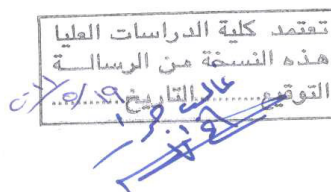 تعتمد كلية الدراسات العليا
هذه النسخة من الرسالــة
التوقيع..........التاريخ..........